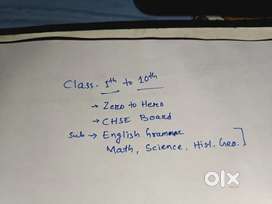 Class - 1th to 10th
→ Zero to Hero
→ CHSE Board
Sub → English Grammar
Math, Science, Hist. Geo.]
OLX